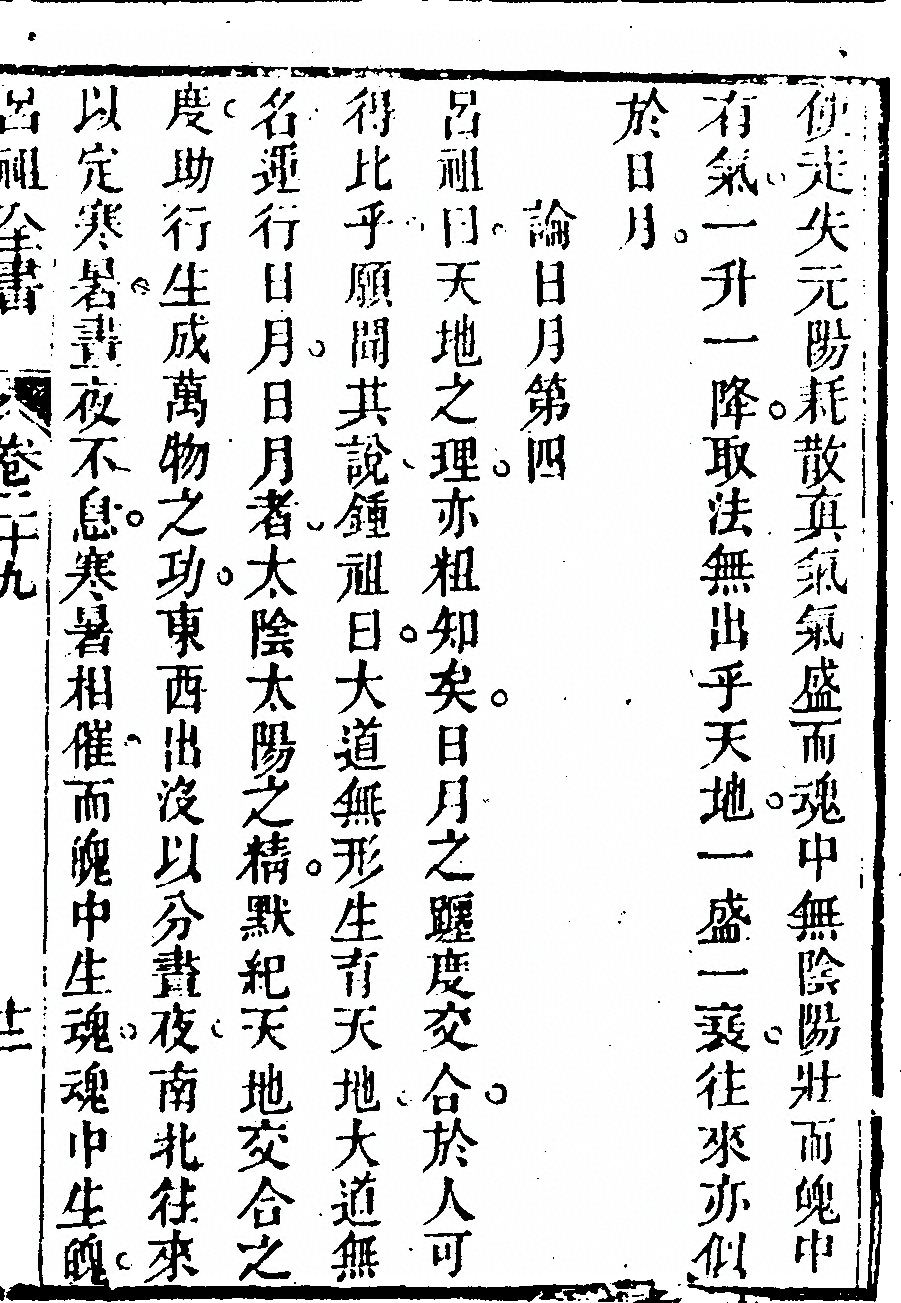 使走失元陽耗散真氣氣盛而魂中無陰陽壯而魄中
有氣一升一降取法無出乎天地一盛一衰往來亦似
於日月
論日月第四
呂祖曰天地之理亦粗知矣日月之躔度交合於人可
得比乎願聞其說鍾祖曰大道無形生育天地大道無
名運行日月日月者太陰太陽之精默紀天地交合之
度助行生成萬物之功東西出沒以分晝夜南北往來
以定寒暑晝夜不息寒暑相催而魄中生魂魂中生魄
呂祖全書 卷二十九 十二